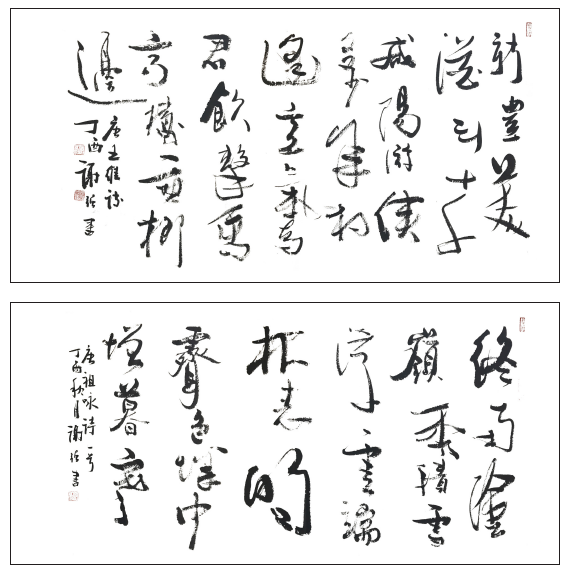 新豐美
酒斗十千
咸陽游俠
多少年相
逢意气為
君飲繫馬
高樓垂柳
邊
唐王維詩
丁酉謝書
終南陰
嶺秀積雪
浮雲端
林表明
霽色城中
增暮寒
唐祖咏詩一首
丁酉秋月謝書